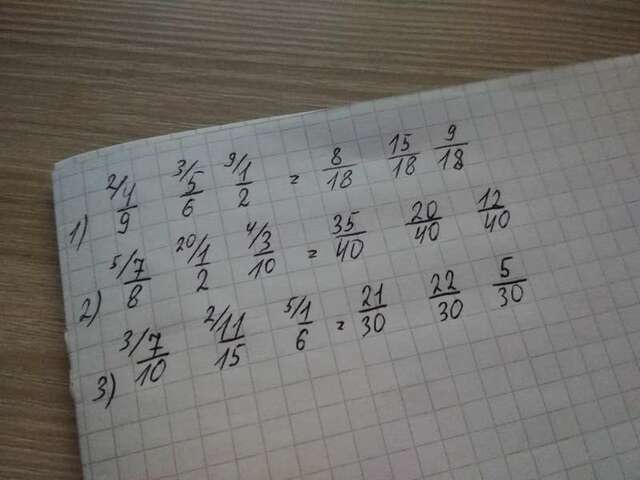 1) ²/4/9 ³/5/6 ⁹/1/2 = 8/18 15/18 9/18
2) ⁵/7/8 ²⁰/1/2 ⁴/3/10 = 35/40 20/40 12/40
3) ³/7/10 ²/11/15 ⁵/1/6 = 21/30 22/30 5/30